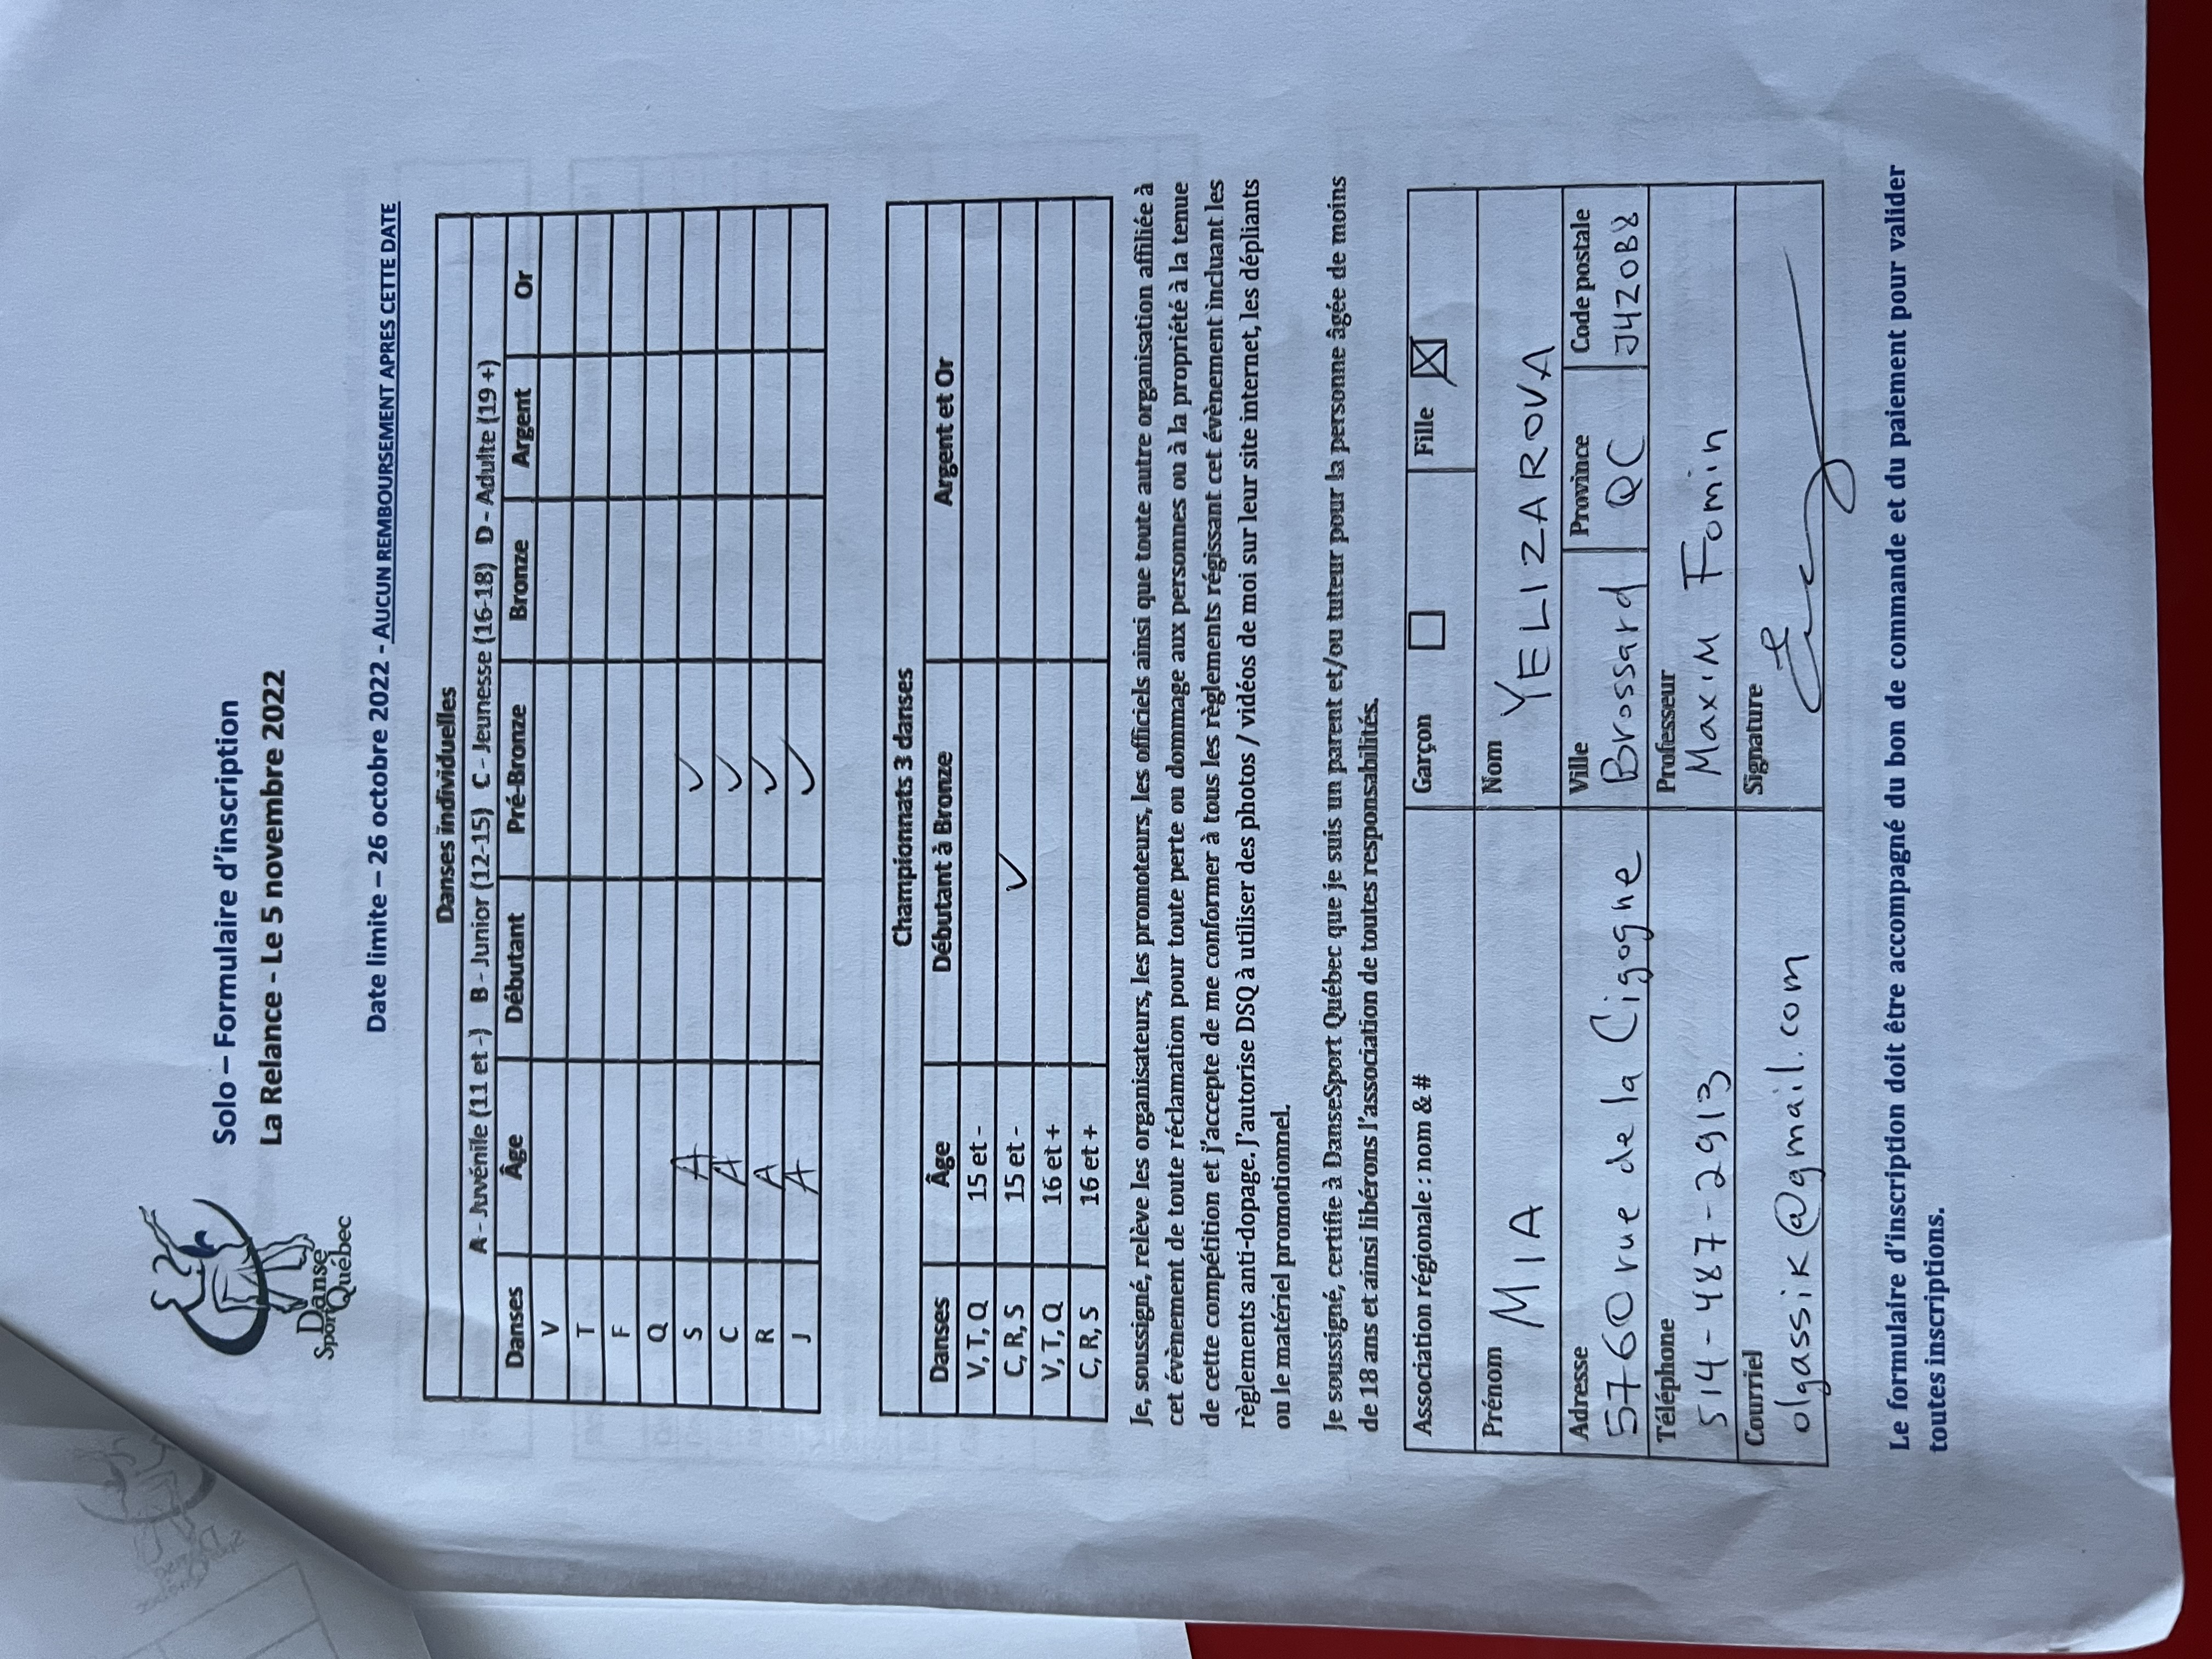 Danse
Sport Québec
Solo – Formulaire d'inscription
La Relance - Le 5 novembre 2022
Date limite – 26 octobre 2022 - AUCUN REMBOURSEMENT APRES CETTE DATE
Danses individuelles
A - Juvénile (11 et -) B - Junior (12-15) C - Jeunesse (16-18) D - Adulte (19 +)
Danses Âge Débutant Pré-Bronze Bronze Argent Or
V
T
F
Q
S A ✓
C A ✓
R A ✓
J A ✓
Championnats 3 danses
Danses Âge Débutant à Bronze Argent et Or
V, T, Q 15 et -
C, R, S 15 et - ✓
V, T, Q 16 et +
C, R, S 16 et +
Je, soussigné, relève les organisateurs, les promoteurs, les officiels ainsi que toute autre organisation affiliée à
cet évènement de toute réclamation pour toute perte ou dommage aux personnes ou à la propriété à la tenue
de cette compétition et j'accepte de me conformer à tous les règlements régissant cet évènement incluant les
règlements anti-dopage. J'autorise DSQ à utiliser des photos / vidéos de moi sur leur site internet, les dépliants
ou le matériel promotionnel.
Je soussigné, certifie à DanseSport Québec que je suis un parent et/ou tuteur pour la personne âgée de moins
de 18 ans et ainsi libérons l'association de toutes responsabilités.
Association régionale : nom & # Garçon ☐ Fille ☒
Prénom MIA Nom YELIZAROVA
Adresse Ville Province Code postale
5760 rue de la Cigogne Brossard QC J4Z0B8
Téléphone Professeur
514-487-2913 Maxim Fomin
Courriel Signature
olgassik@gmail.com
Le formulaire d'inscription doit être accompagné du bon de commande et du paiement pour valider
toutes inscriptions.